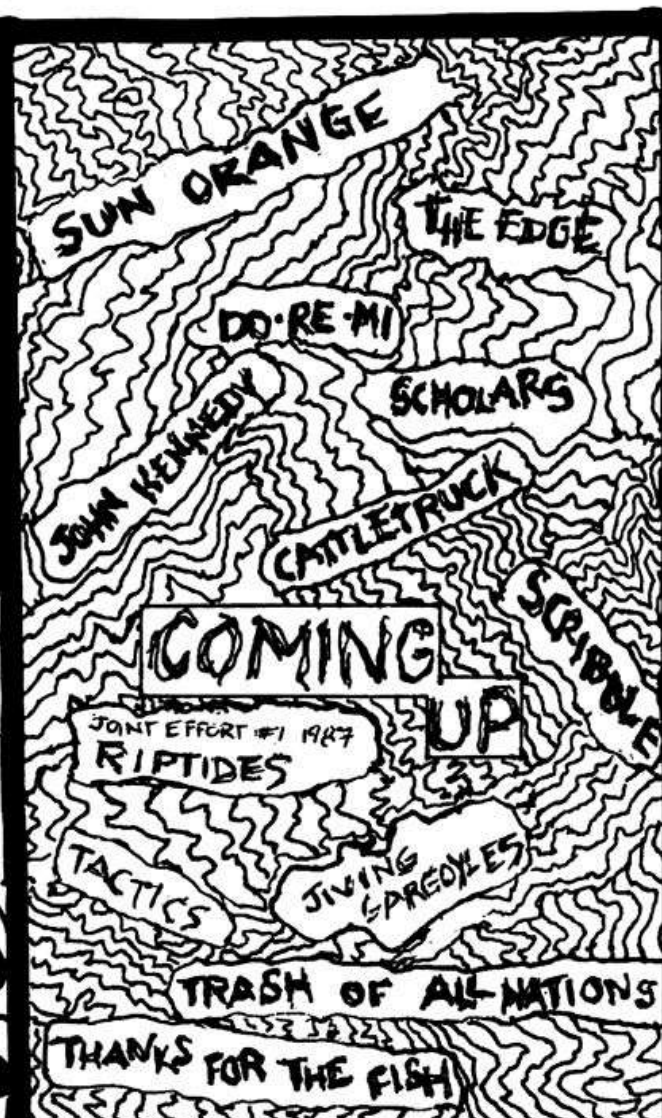 SUN ORANGE
THE EDGE
DO·RE·MI
SCHOLARS
JOHN KENNEDY
CATTLETRUCK
SCRIBBLE
COMING
UP
JOINT EFFORT #1 1987
RIPTIDES
TACTICS
JIVING
GARGOYLES
TRASH OF ALL NATIONS
THANKS FOR THE FISH